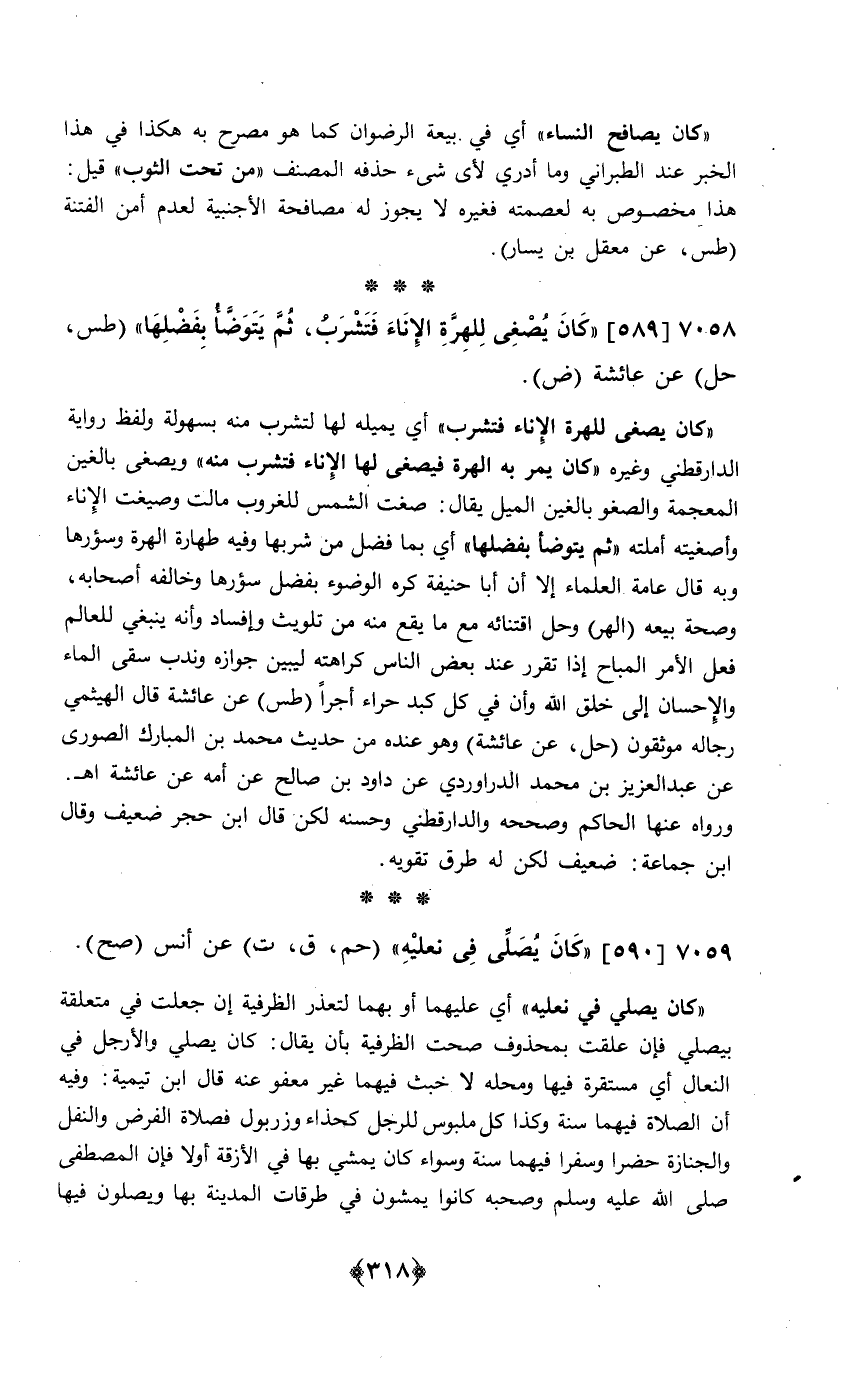 «كان يصافح النساء» أي في بيعة الرضوان كما هو مصرح به هكذا في هذا
الخبر عند الطبراني وما أدري لأى شىء حذفه المصنف «من تحت الثوب» قيل:
هذا مخصوص به لعصمته فغيره لا يجوز له مصافحة الأجنبية لعدم أمن الفتنة
(طس، عن معقل بن يسار).
* * *
٧٠٥٨ [٥٨٩] «كَانَ يُصْغِى لِلهِرَّةِ الإِنَاءَ فَتَشْرَبُ، ثُمَّ يَتَوَضَّأُ بِفَضْلِهَا» (طس،
حل) عن عائشة (ض).
«كان يصغى للهرة الإِناء فتشرب» أي يميله لها لتشرب منه بسهولة ولفظ رواية
الدارقطني وغيره «كان يمر به الهرة فيصغى لها الإِناء فتشرب منه» ويصغى بالغين
المعجمة والصغو بالغين الميل يقال: صغت الشمس للغروب مالت وصيغت الإِناء
وأصغيته أملته «ثم يتوضأ بفضلها» أي بما فضل من شربها وفيه طهارة الهرة وسؤرها
وبه قال عامة العلماء إلا أن أبا حنيفة كره الوضوء بفضل سؤرها وخالفه أصحابه،
وصحة بيعه (الهر) وحل اقتنائه مع ما يقع منه من تلويث وإفساد وأنه ينبغي للعالم
فعل الأمر المباح إذا تقرر عند بعض الناس كراهته ليبين جوازه وندب سقى الماء
والإِحسان إلى خلق الله وأن في كل كبد حراء أجراً (طس) عن عائشة قال الهيثمي
رجاله موثقون (حل، عن عائشة) وهو عنده من حديث محمد بن المبارك الصورى
عن عبدالعزيز بن محمد الدراوردي عن داود بن صالح عن أمه عن عائشة اهـ.
ورواه عنها الحاكم وصححه والدارقطني وحسنه لكن قال ابن حجر ضعيف وقال
ابن جماعة: ضعيف لكن له طرق تقويه.
* * *
٧٠٥٩ [٥٩٠] «كَانَ يُصَلِّى فِى نعليْهِ» (حم، ق، ت) عن أنس (صح).
«كان يصلي في نعليه» أي عليهما أو بهما لتعذر الظرفية إن جعلت في متعلقة
بيصلي فإن علقت بمحذوف صحت الظرفية بأن يقال: كان يصلي والأرجل في
النعال أي مستقرة فيها ومحله لا خبث فيهما غير معفو عنه قال ابن تيمية: وفيه
أن الصلاة فيهما سنة وكذا كل ملبوس للرجل كحذاء وزربول فصلاة الفرض والنفل
والجنازة حضرا وسفرا فيهما سنة وسواء كان يمشي بها في الأزقة أولا فإن المصطفى
صلى الله عليه وسلم وصحبه كانوا يمشون في طرقات المدينة بها ويصلون فيها
﴿٣١٨﴾